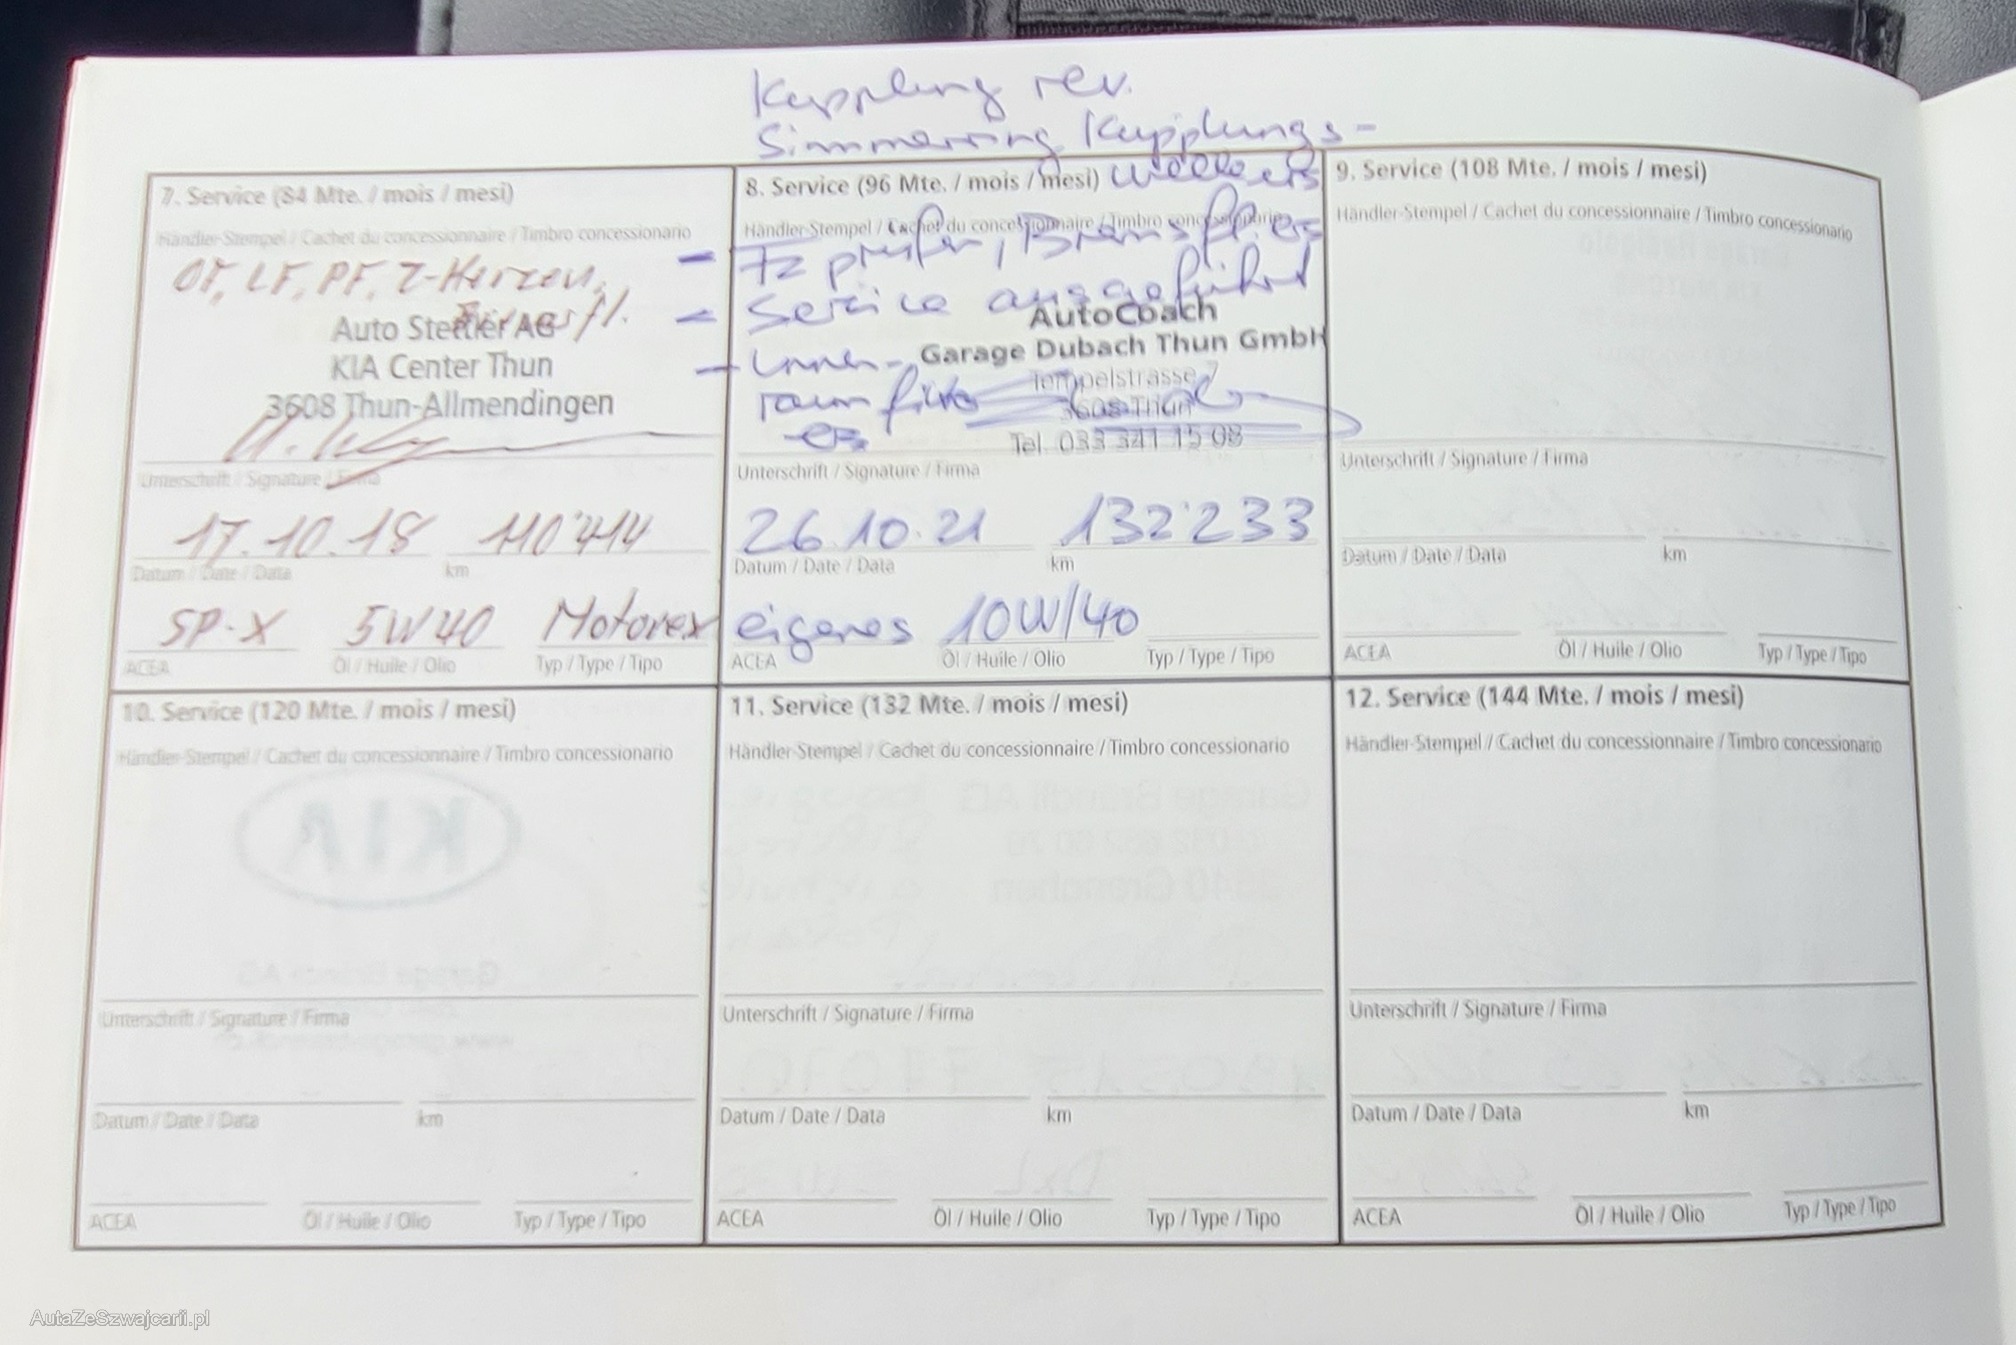 Kupplung rev.
Simmerring Kupplungs-
welle ers
7. Service (84 Mte. / mois / mesi)
Händler-Stempel / Cachet du concessionnaire / Timbro concessionario
OF, LF, PF, Z-Kerzen,
Bremsfl.
Auto Stettler AG
KIA Center Thun
3608 Thun-Allmendingen
Unterschrift / Signature / Firma
17.10.18 110'414
Datum / Date / Data km
SP-X 5W40 Motorex
ACEA Öl / Huile / Olio Typ / Type / Tipo
8. Service (96 Mte. / mois / mesi)
Händler-Stempel / Cachet du concessionnaire / Timbro concessionario
- Fz prüfen, Bremsfl. ers
- Service ausgeführt
AutoCoach
Garage Dubach Thun GmbH
- Innen-
raumfilter
ers
Tempelstrasse 7
3608 Thun
Tel. 033 341 15 08
Unterschrift / Signature / Firma
26.10.21 132'233
Datum / Date / Data km
eigenes 10W/40
ACEA Öl / Huile / Olio Typ / Type / Tipo
9. Service (108 Mte. / mois / mesi)
Händler-Stempel / Cachet du concessionnaire / Timbro concessionario
Unterschrift / Signature / Firma
Datum / Date / Data km
ACEA Öl / Huile / Olio Typ / Type / Tipo
10. Service (120 Mte. / mois / mesi)
Händler-Stempel / Cachet du concessionnaire / Timbro concessionario
Unterschrift / Signature / Firma
Datum / Date / Data km
ACEA Öl / Huile / Olio Typ / Type / Tipo
11. Service (132 Mte. / mois / mesi)
Händler-Stempel / Cachet du concessionnaire / Timbro concessionario
Unterschrift / Signature / Firma
Datum / Date / Data km
ACEA Öl / Huile / Olio Typ / Type / Tipo
12. Service (144 Mte. / mois / mesi)
Händler-Stempel / Cachet du concessionnaire / Timbro concessionario
Unterschrift / Signature / Firma
Datum / Date / Data km
ACEA Öl / Huile / Olio Typ / Type / Tipo
AutaZeSzwajcarii.pl